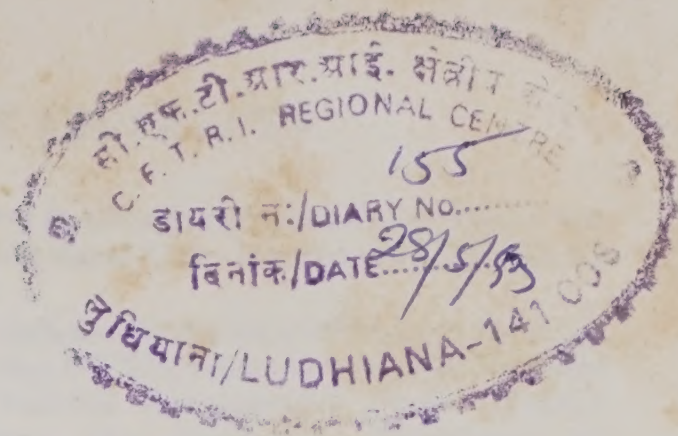 सी.एफ.टी.आर.आई. क्षेत्रीय
C. F. T. R. I. REGIONAL CENTRE
155
डायरी नः/DIARY No.........
दिनांक/DATE 28/5/
लुधियाना/LUDHIANA-141 008